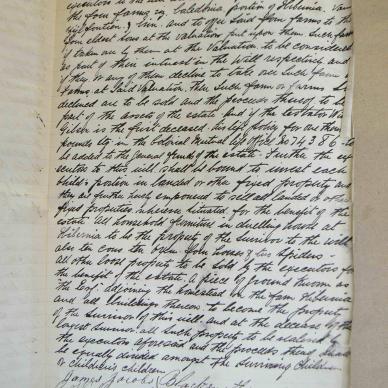 executors
the four farms viz Caledonia portion of Hibernia Van
& Erin. and to give said farms to the
four eldest sons at the valuation put upon them. Such farms
if taken over by them at the valuation to be considered
as part of their interest in the will respectively and
if they or any of them decline to take over such farm
farms at said valuation. Then such farm or farms so
declined are to be sold and the proceeds thereof to be
part of the assets of the estate and if the testator
is the first deceased. his life policy for one thous
pounds stg in the Colonial Mutual Life Office No 74386 to
be added to the general funds of the estate. Further the exe
cutors to this will shall be bound to invest each
child's portion in landed or other fixed property and
they are further hereby empowered to sell all landed or other
fixed properties wherever situated for the benefit of the
estate. All household furniture in dwelling house at
Hibernia to be the property of the survivor to the will
also ten cows ten oxen four horses & two spiders
all other loose property to be sold by the executors for
the benefit of the estate. A piece of ground known as
the adjoining the homestead on the farm Hibernia
and all buildings thereon to become the property
of the survivor of this will. and at the decease of the
longest survivor. all such property to be realized by
the executors aforesaid and the proceeds thereof shall
be equally divided amongst the surviving children
or children's children
James Jacobs